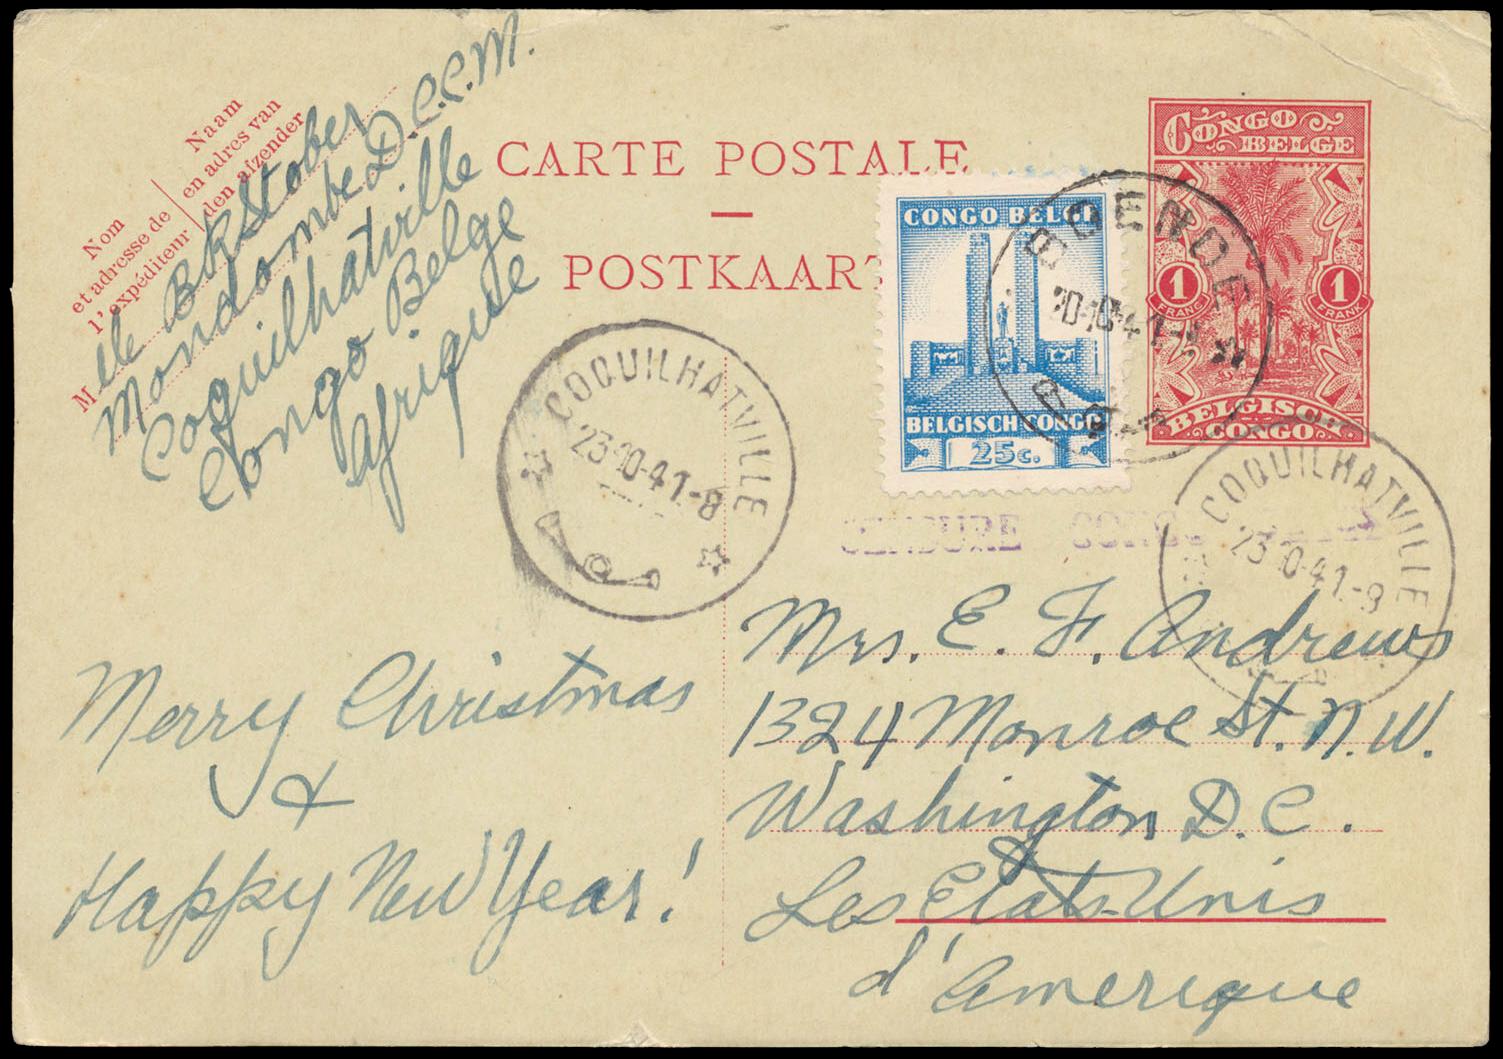 Nom
et adresse de
l'expéditeur
Naam
en adres van
den afzender
Mlle B R Stober
Mondombe D.C.C.M.
Coquilhatville
Congo Belge
Afrique
CARTE POSTALE
—
POSTKAART
CONGO BELGE
BELGISCH CONGO
25c.
CONGO
BELGE
1
FRANC
1
FRANK
BELGISCH
CONGO
BOENDE
COQUILHATVILLE
23-10-41.-8
CENSURE CONGO
COQUILHATVILLE
23-10-41.-8
Merry Christmas
&
Happy New Year!
Mrs. E. F. Andrews
1324 Monroe St. N.W.
Washington D.C.
Les Etats-Unis
d'Amerique